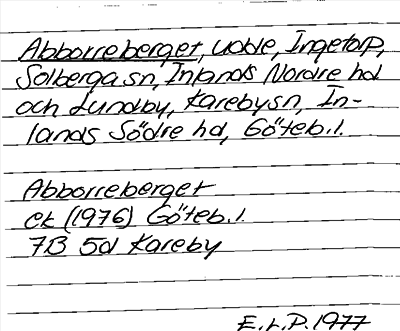 Abborreberget, udde, Ingetorp,
Solberga sn, Inlands Nordre hd
och Lundby, Kareby sn, In-
lands Södre hd, Göteb. l.
Abborreberget
ek (1976) Göteb. l.
7B 5d Kareby
E.L.P. 1977